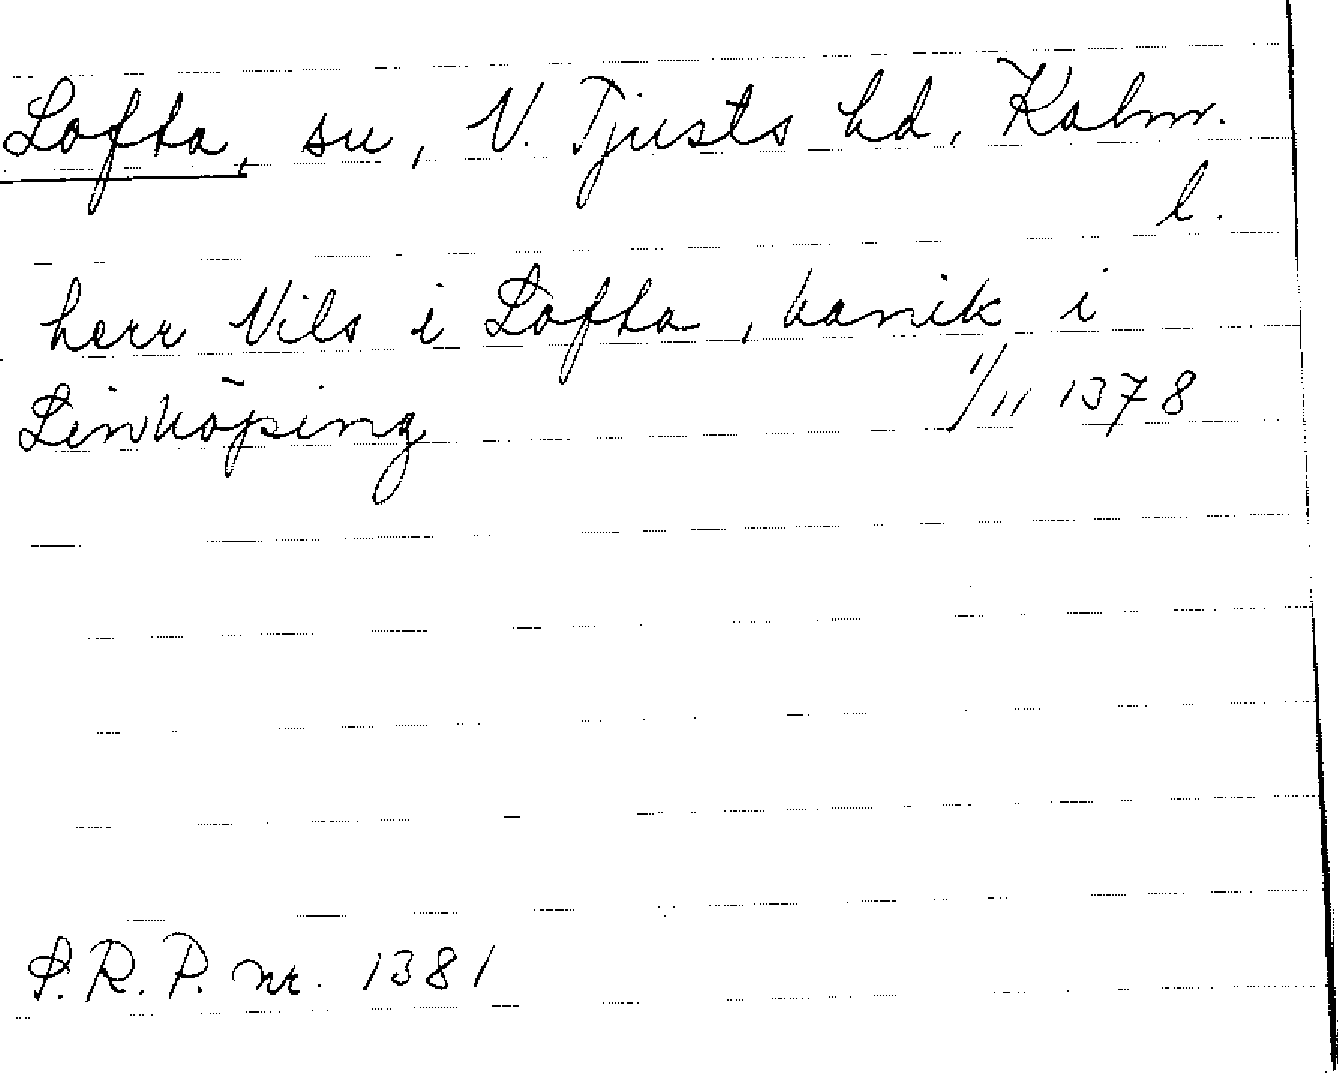 Lofta, sn, V. Tjusts hd, Kalm.
l.
herr Nils i Lofta, kanik i
Linköping 1/11 1378
S.R.P. nr. 1381